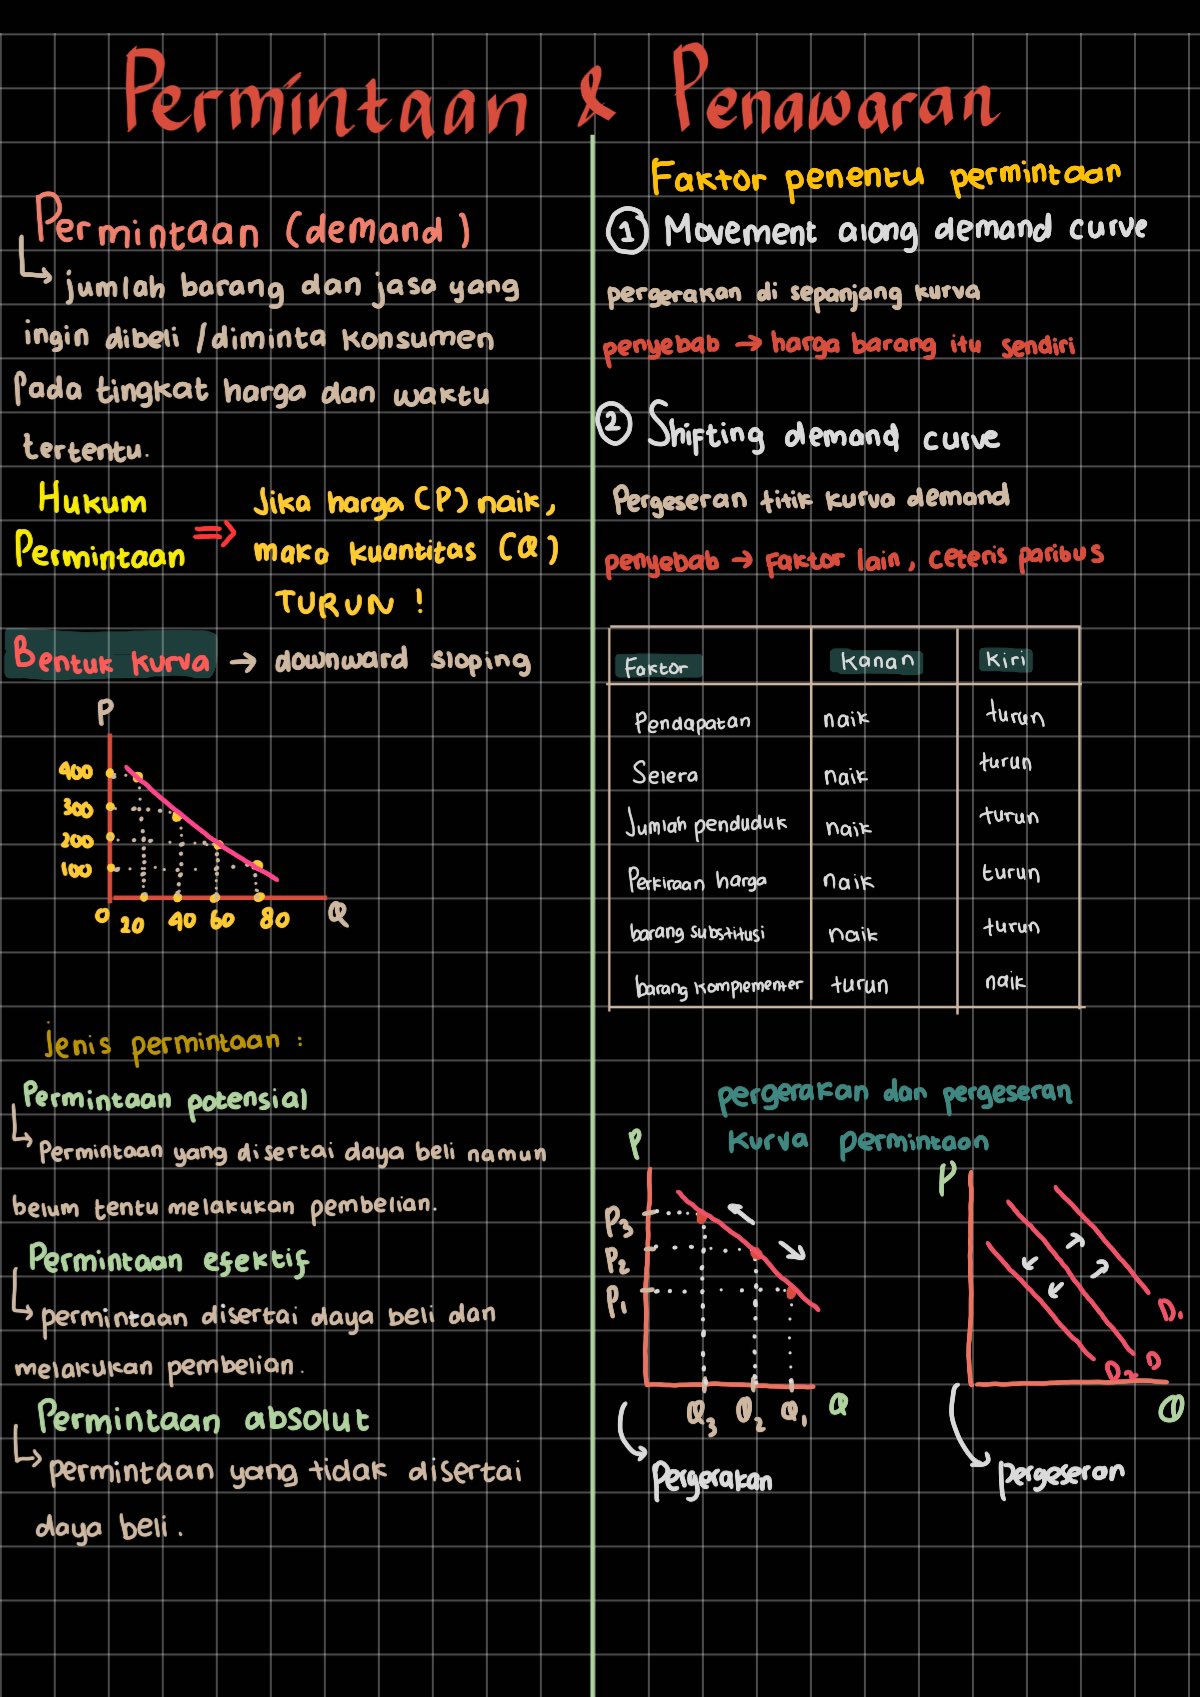 Permintaan & Penawaran
Permintaan (demand)
jumlah barang dan jasa yang
ingin dibeli / diminta konsumen
Pada tingkat harga dan waktu
tertentu.
Hukum
Permintaan
⇒
Jika harga (P) naik,
maka kuantitas (Q)
TURUN !
Bentuk kurva → downward sloping
P
400
300
200
100
0 20 40 60 80 Q
Jenis permintaan :
Permintaan potensial
Permintaan yang disertai daya beli namun
belum tentu melakukan pembelian.
Permintaan efektif
permintaan disertai daya beli dan
melakukan pembelian.
Permintaan absolut
permintaan yang tidak disertai
daya beli.
Faktor penentu permintaan
1 Movement along demand curve
pergerakan di sepanjang kurva
penyebab → harga barang itu sendiri
2 Shifting demand curve
Pergeseran titik kurva demand
penyebab → Faktor lain, ceteris paribus
Faktor Kanan Kiri
Pendapatan naik turun
Selera naik turun
Jumlah penduduk naik turun
Perkiraan harga naik turun
barang substitusi naik turun
barang komplementer turun naik
pergerakan dan pergeseran
kurva permintaan
P
P3
P2
P1
Q3 Q2 Q1 Q
Pergerakan
P
D1
D2 D
Q
pergeseran